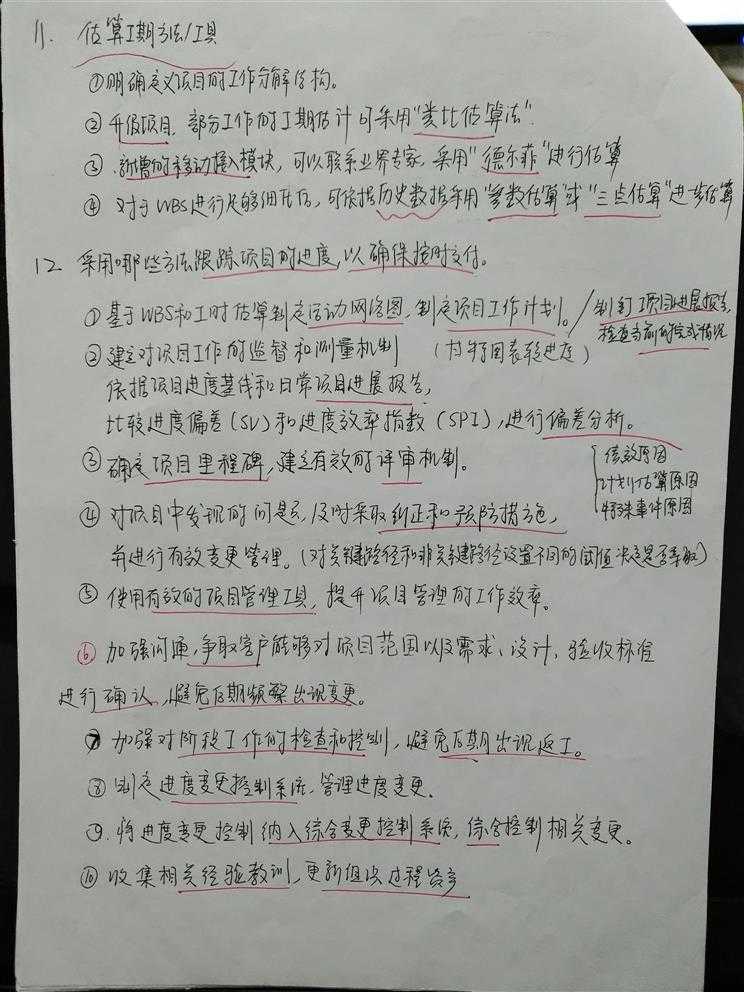 11. 估算工期方法/工具
①明确定义项目的工作分解结构。
②升级项目，部分工作的工期估计可采用"类比估算法"
③.新增的移动接入模块，可以联系业界专家，采用"德尔菲"进行估算
④对于WBS进行足够细化后，可依据历史数据采用"参数估算"或"三点估算"进步估算
12 采用哪些方法跟踪项目的进度，以确保按时交付。
①基于WBS和工时估算制定活动网络图，制定项目工作计划。/制订项目进展报告，
检查当前的完成情况
②建立对项目工作的监督和测量机制 (甘特图表较进度)
依据项目进度基线和日常项目进展报告，
比较进度偏差(SV)和进度效率指数(SPI)，进行偏差分析。
③确定项目里程碑，建立有效的评审机制。
绩效原因
计划估算原因
特殊事件原因
④对项目中发现的问题，及时采取纠正和预防措施，
并进行有效变更管理。(对关键路径和非关键路径设置不同的阈值决定是否采取)
⑤使用有效的项目管理工具，提升项目管理的工作效率。
⑥加强沟通，争取客户能够对项目范围以及需求、设计、验收标准
进行确认，避免后期频繁出现变更。
⑦加强对阶段工作的检查和控制，避免后期出现返工。
⑧制定进度变更控制系统，管理进度变更。
⑨.将进度变更控制纳入综合变更控制系统，综合控制相关变更。
⑩收集相关经验教训，更新组织过程资产